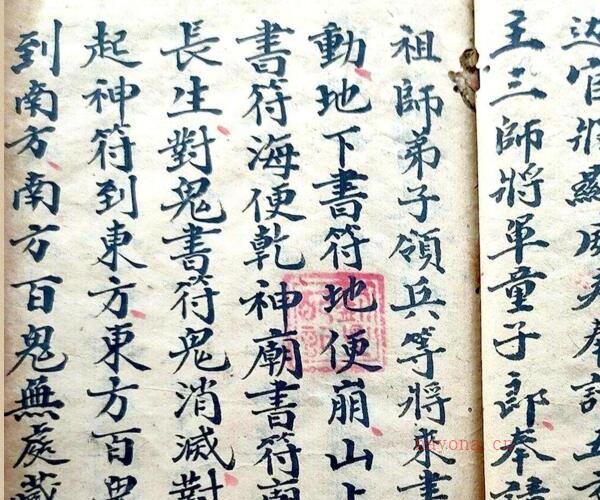 官將奉請五
主三師將軍童子郎奉請
祖師弟子領兵等將来書
動地下書符地便崩山上
書符海便乾神廟書符廟
長生對鬼書符鬼消滅對
起神符到東方東方百鬼
到南方南方百鬼無處藏
nayona.cn